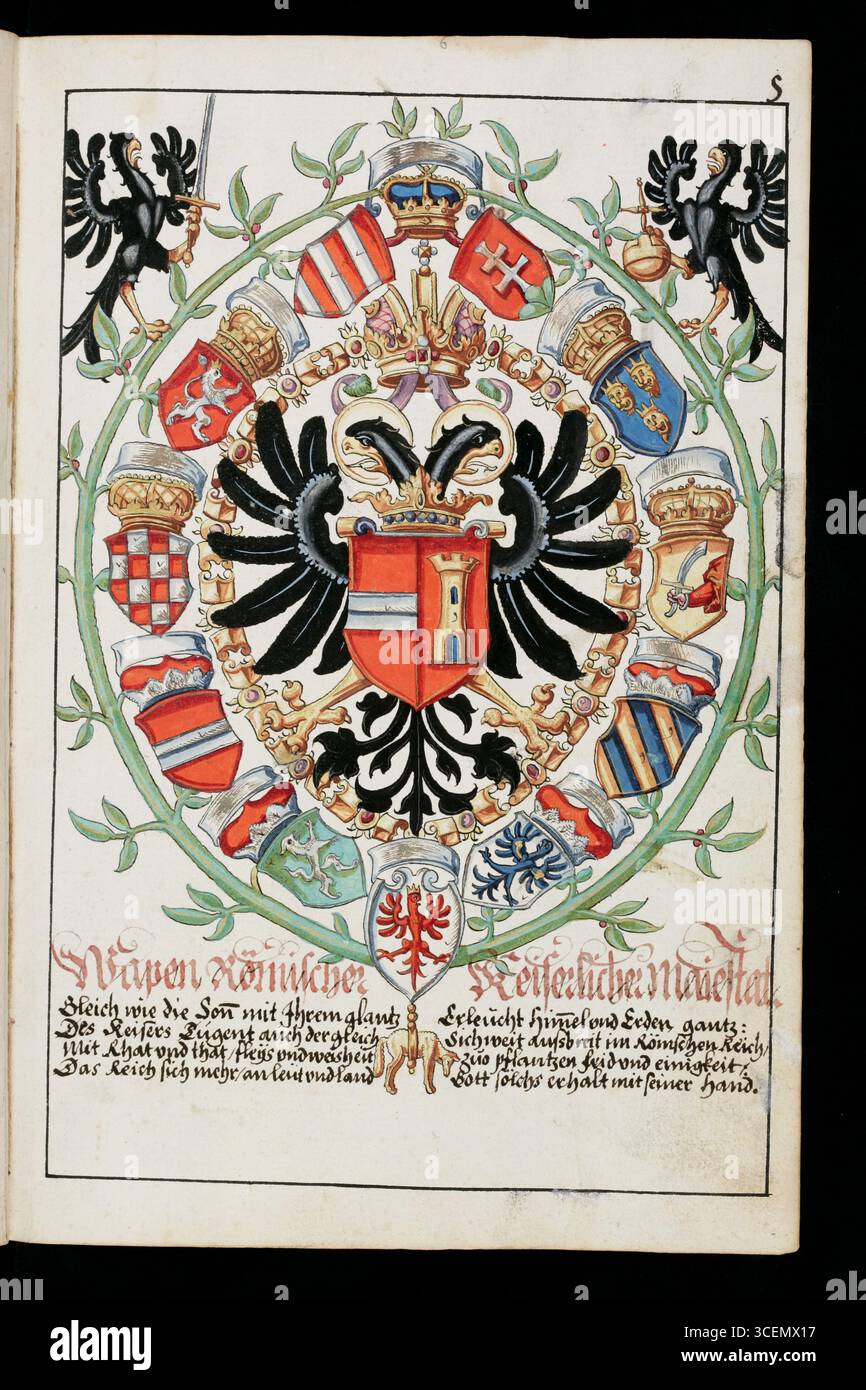 6
5
Wapen Römischer Keiserlicher Maiestat.
Gleich wie die Soñ mit Ihrem glantz Erleücht himel und Erden gantz:
Des Keisers Tugent auch der gleich Sich weit ausbreit im Römschen Reich/
Mit Rhat und that/fleÿs und weisheit Zuo pflantzen frid und einigkeit/:
Das Reich sich mehr/an leut und land Gott solchs erhalt mit seiner hand.
a
a
alamy
Image ID: 3CEMX17
www.alamy.com